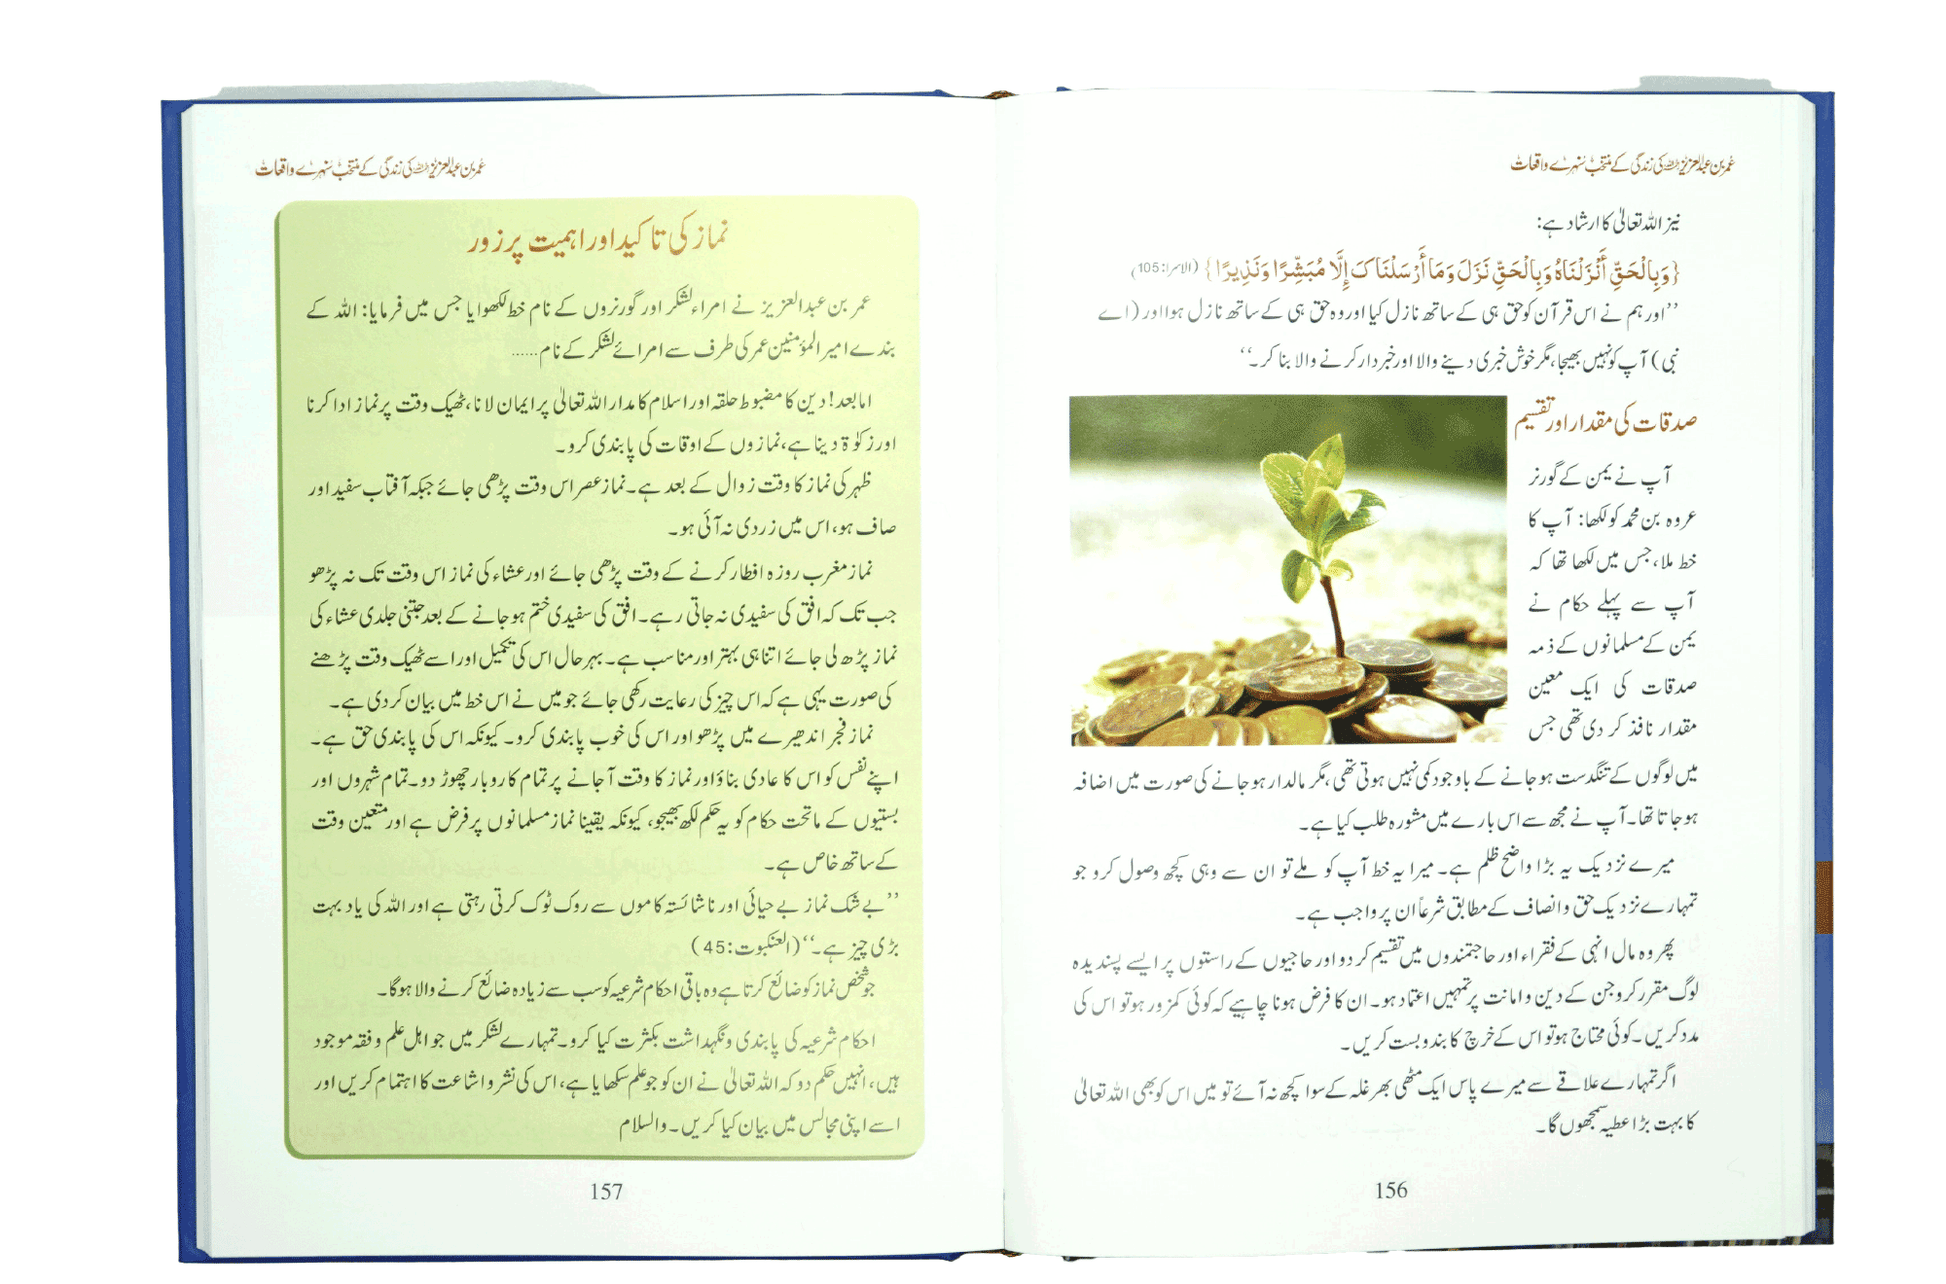 عمر بن عبدالعزیز رحمہ اللہ کی زندگی کے منتخب سنہرے واقعات
نیز اللہ تعالیٰ کا ارشاد ہے:
{وَبِالْحَقِّ أَنْزَلْنَاهُ وَبِالْحَقِّ نَزَلَ وَمَا أَرْسَلْنَاكَ إِلَّا مُبَشِّرًا وَنَذِيرًا} (الاسرا:105)
’’اور ہم نے اس قرآن کو حق ہی کے ساتھ نازل کیا اور وہ حق ہی کے ساتھ نازل ہوا اور (اے
نبی) آپ کو نہیں بھیجا، مگر خوش خبری دینے والا اور خبردار کرنے والا بنا کر۔‘‘
صدقات کی مقدار اور تقسیم
آپ نے یمن کے گورنر
عروہ بن محمد کو لکھا: آپ کا
خط ملا، جس میں لکھا تھا کہ
آپ سے پہلے حکام نے
یمن کے مسلمانوں کے ذمہ
صدقات کی ایک معین
مقدار نافذ کر دی تھی جس
میں لوگوں کے تنگدست ہو جانے کے باوجود کمی نہیں ہوتی تھی، مگر مالدار ہو جانے کی صورت میں اضافہ
ہو جاتا تھا۔ آپ نے مجھ سے اس بارے میں مشورہ طلب کیا ہے۔
میرے نزدیک یہ بڑا واضح ظلم ہے۔ میرا یہ خط آپ کو ملے تو ان سے وہی کچھ وصول کرو جو
تمہارے نزدیک حق و انصاف کے مطابق شرعاً ان پر واجب ہے۔
پھر وہ مال انہی کے فقراء اور حاجتمندوں میں تقسیم کر دو اور حاجیوں کے راستوں پر ایسے پسندیدہ
لوگ مقرر کرو جن کے دین و امانت پر تمہیں اعتماد ہو۔ ان کا فرض ہونا چاہیے کہ کوئی کمزور ہو تو اس کی
مدد کریں۔ کوئی محتاج ہو تو اس کے خرچ کا بندوبست کریں۔
اگر تمہارے علاقے سے میرے پاس ایک مٹھی بھر غلہ کے سوا کچھ نہ آئے تو میں اس کو بھی اللہ تعالیٰ
کا بہت بڑا عطیہ سمجھوں گا۔
156
عمر بن عبدالعزیز رحمہ اللہ کی زندگی کے منتخب سنہرے واقعات
نماز کی تاکید اور اہمیت پر زور
عمر بن عبدالعزیز نے امراء لشکر اور گورنروں کے نام خط لکھوایا جس میں فرمایا: اللہ کے
بندے امیر المؤمنین عمر کی طرف سے امرائے لشکر کے نام......
اما بعد! دین کا مضبوط حلقہ اور اسلام کا مدار اللہ تعالیٰ پر ایمان لانا، ٹھیک وقت پر نماز ادا کرنا
اور زکوٰۃ دینا ہے، نمازوں کے اوقات کی پابندی کرو۔
ظہر کی نماز کا وقت زوال کے بعد ہے۔ نماز عصر اس وقت پڑھی جائے جبکہ آفتاب سفید اور
صاف ہو، اس میں زردی نہ آئی ہو۔
نماز مغرب روزہ افطار کرنے کے وقت پڑھی جائے اور عشاء کی نماز اس وقت تک نہ پڑھو
جب تک کہ افق کی سفیدی نہ جاتی رہے۔ افق کی سفیدی ختم ہو جانے کے بعد جتنی جلدی عشاء کی
نماز پڑھ لی جائے اتنا ہی بہتر اور مناسب ہے۔ بہرحال اس کی تکمیل اور اسے ٹھیک وقت پڑھنے
کی صورت یہی ہے کہ اس چیز کی رعایت رکھی جائے جو میں نے اس خط میں بیان کر دی ہے۔
نماز فجر اندھیرے میں پڑھو اور اس کی خوب پابندی کرو۔ کیونکہ اس کی پابندی حق ہے۔
اپنے نفس کو اس کا عادی بناؤ اور نماز کا وقت آ جانے پر تمام کاروبار چھوڑ دو۔ تمام شہروں اور
بستیوں کے ماتحت حکام کو یہ حکم لکھ بھیجو، کیونکہ یقینا نماز مسلمانوں پر فرض ہے اور متعین وقت
کے ساتھ خاص ہے۔
’’بے شک نماز بے حیائی اور ناشائستہ کاموں سے روک ٹوک کرتی رہتی ہے اور اللہ کی یاد بہت
بڑی چیز ہے۔‘‘ (العنکبوت:45)
جو شخص نماز کو ضائع کرتا ہے وہ باقی احکام شرعیہ کو سب سے زیادہ ضائع کرنے والا ہو گا۔
احکام شرعیہ کی پابندی و نگہداشت بکثرت کیا کرو۔ تمہارے لشکر میں جو اہل علم و فقہ موجود
ہیں، انہیں حکم دو کہ اللہ تعالیٰ نے ان کو جو علم سکھایا ہے، اس کی نشر و اشاعت کا اہتمام کریں اور
اسے اپنی مجالس میں بیان کیا کریں۔ والسلام
157